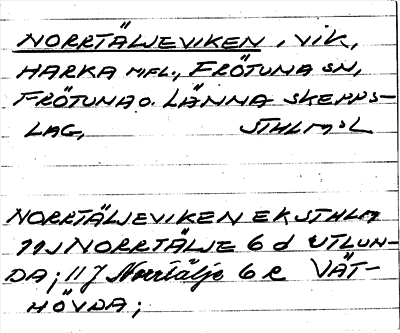 NORRTÄLJEVIKEN, VIK,
HARKA MFL., FRÖTUNA SN,
FRÖTUNA O. LÄNNA SKEPPS-
LAG, STHLMSL
NORRTÄLJEVIKEN EK STHLM
11J NORRTÄLJE 6 d UTLUN-
DA; 11J Norrtälje 6 e VÄT-
HÖVDA;